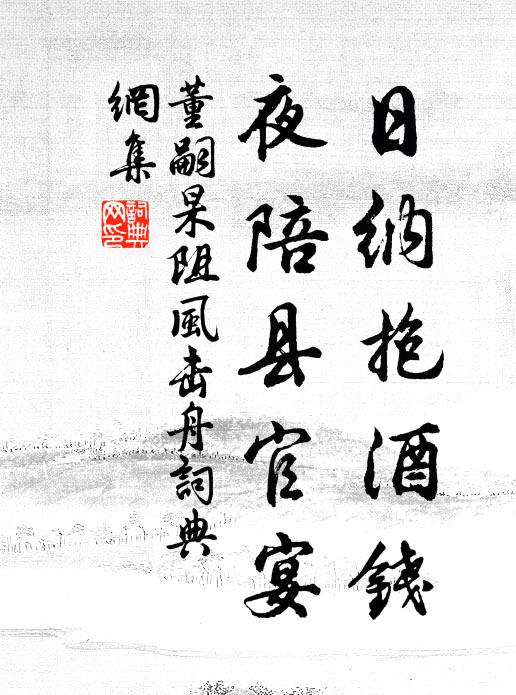 日纳抱酒錢
夜陪县官宴
董嗣杲阻風击舟詞典
網集
詞典
网印